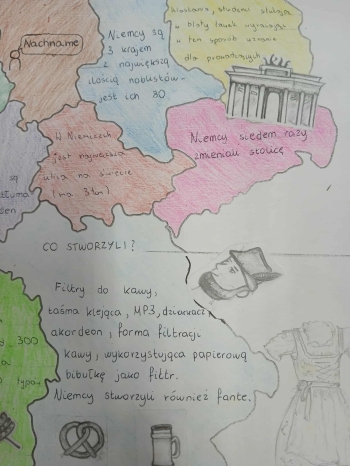 Nachname
Niemcy są
3 krajem
z największą
ilością noblistów-
jest ich 80
studenci stukają
w blaty ławek wyrażając
w ten sposób uznanie
dla prowadzących
W Niemczech
jest najwęższa
ulica na świecie
(ma 31cm)
Niemcy siedem razy
zmieniali stolicę
są
CO STWORZYLI?
Filtry do kawy,
taśma klejąca, MP3, dziurkacz,
akordeon, forma filtracji
kawy, wykorzystująca papierową
bibułkę jako filtr.
Niemcy stworzyli również fantę.
300
typów